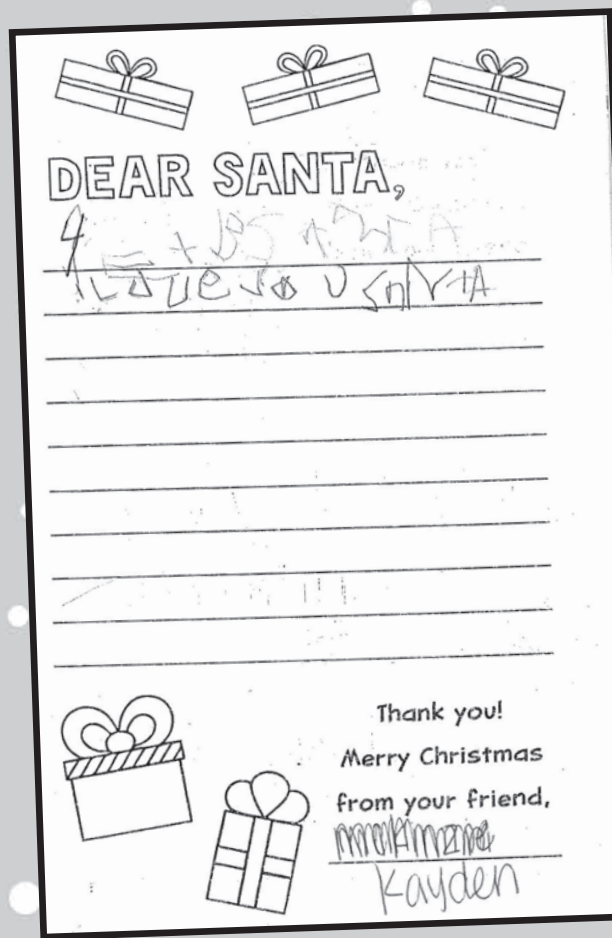 DEAR SANTA,
I LOVE YOU SANTA
Thank you!
Merry Christmas
from your friend,
Kayden